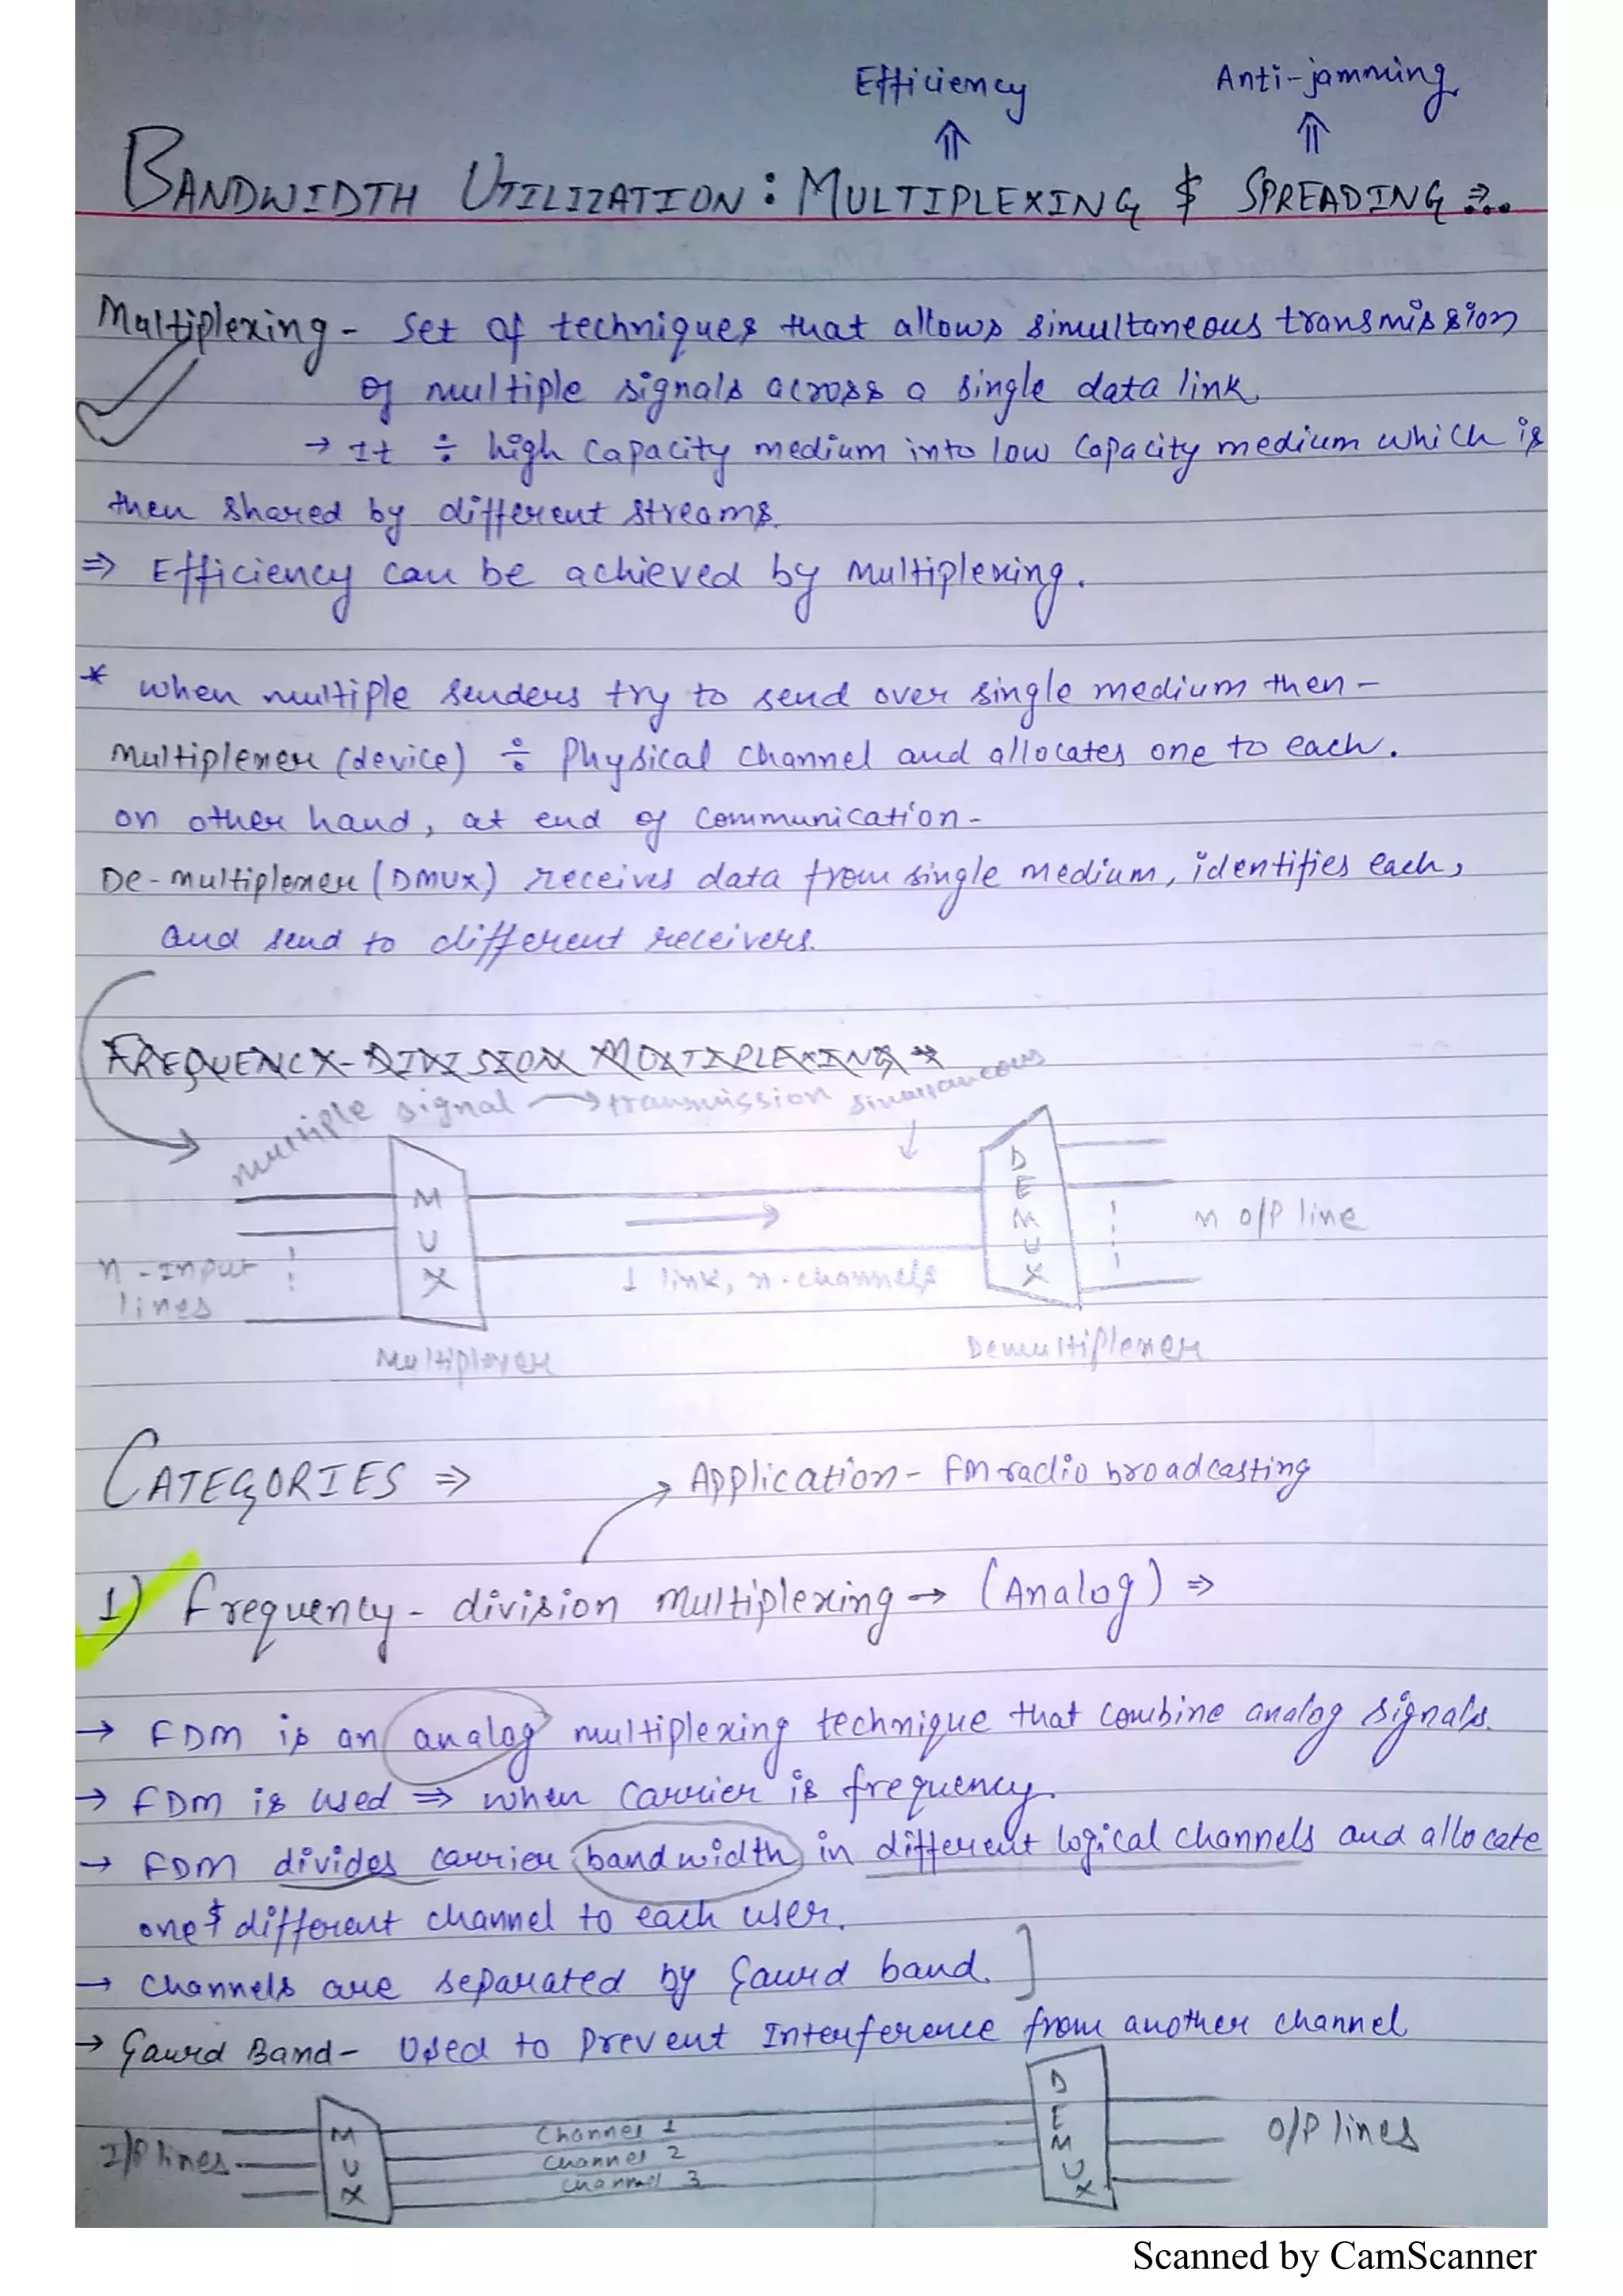 Efficiency Anti-jamming
⇑ ⇑
BANDWIDTH UTILIZATION : MULTIPLEXING & SPREADING ⇒...
Multiplexing - Set of techniques that allows simultaneous transmission
of multiple signals across a single data link.
→ It ÷ high capacity medium into low capacity medium which is
then shared by different streams.
⇒ Efficiency can be achieved by multiplexing.
* when multiple senders try to send over single medium then -
Multiplexer (device) ÷ Physical channel and allocates one to each.
on other hand, at end of communication -
De-multiplexer (DMUX) receives data from single medium, identifies each,
and send to different receivers.
FREQUENCY-DIVISION MULTIPLEXING ⇒
multiple signal → transmission simultaneous
MUX
DEMUX
n - Input
lines
1 link, n-channels
n O/P line
Multiplexer
Demultiplexer
CATEGORIES ⇒
Application - FM radio broadcasting
1) Frequency-division Multiplexing → (Analog) ⇒
→ FDM is an analog multiplexing technique that combine analog signals.
→ FDM is used ⇒ when carrier is frequency.
→ FDM divides carrier bandwidth in different logical channels and allocate
one & different channel to each user.
→ Channels are separated by Gaurd band. ]
→ Gaurd Band - Used to prevent Interference from another channel
I/P lines
MUX
Channel 1
Channel 2
Channel 3
DEMUX
O/P lines
Scanned by CamScanner